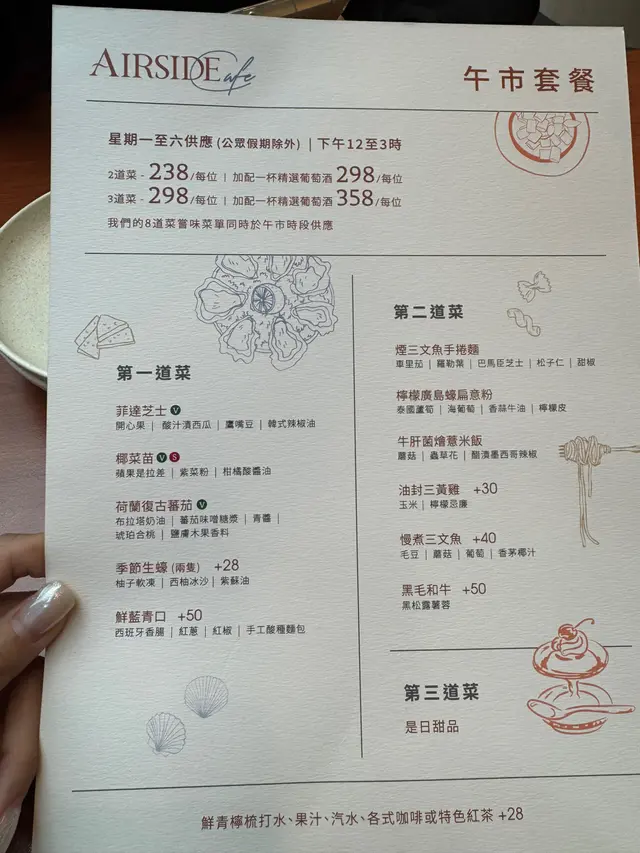 AIRSIDE Cafe
午市套餐
星期一至六供應 (公眾假期除外) | 下午12至3時
2道菜 - 238/每位 | 加配一杯精選葡萄酒 298/每位
3道菜 - 298/每位 | 加配一杯精選葡萄酒 358/每位
我們的8道菜嘗味菜單同時於午市時段供應
第一道菜
菲達芝士 V
開心果 | 酸汁漬西瓜 | 鷹嘴豆 | 韓式辣椒油
椰菜苗 V S
蘋果是拉差 | 紫菜粉 | 柑橘酸醬油
荷蘭復古蕃茄 V
布拉塔奶油 | 蕃茄味噌糖漿 | 青醬 |
琥珀合桃 | 鹽膚木果香料
季節生蠔 (兩隻) +28
柚子軟凍 | 西柚冰沙 | 紫蘇油
鮮藍青口 +50
西班牙香腸 | 紅蔥 | 紅椒 | 手工酸種麵包
第二道菜
煙三文魚手捲麵
車里茄 | 羅勒葉 | 巴馬臣芝士 | 松子仁 | 甜椒
檸檬廣島蠔扁意粉
泰國蘆筍 | 海葡萄 | 香蒜牛油 | 檸檬皮
牛肝菌燴薏米飯
蘑菇 | 蟲草花 | 醋漬墨西哥辣椒
油封三黃雞 +30
玉米 | 檸檬忌廉
慢煮三文魚 +40
毛豆 | 蘑菇 | 葡萄 | 香茅椰汁
黑毛和牛 +50
黑松露薯蓉
第三道菜
是日甜品
鮮青檸梳打水、果汁、汽水、各式咖啡或特色紅茶 +28